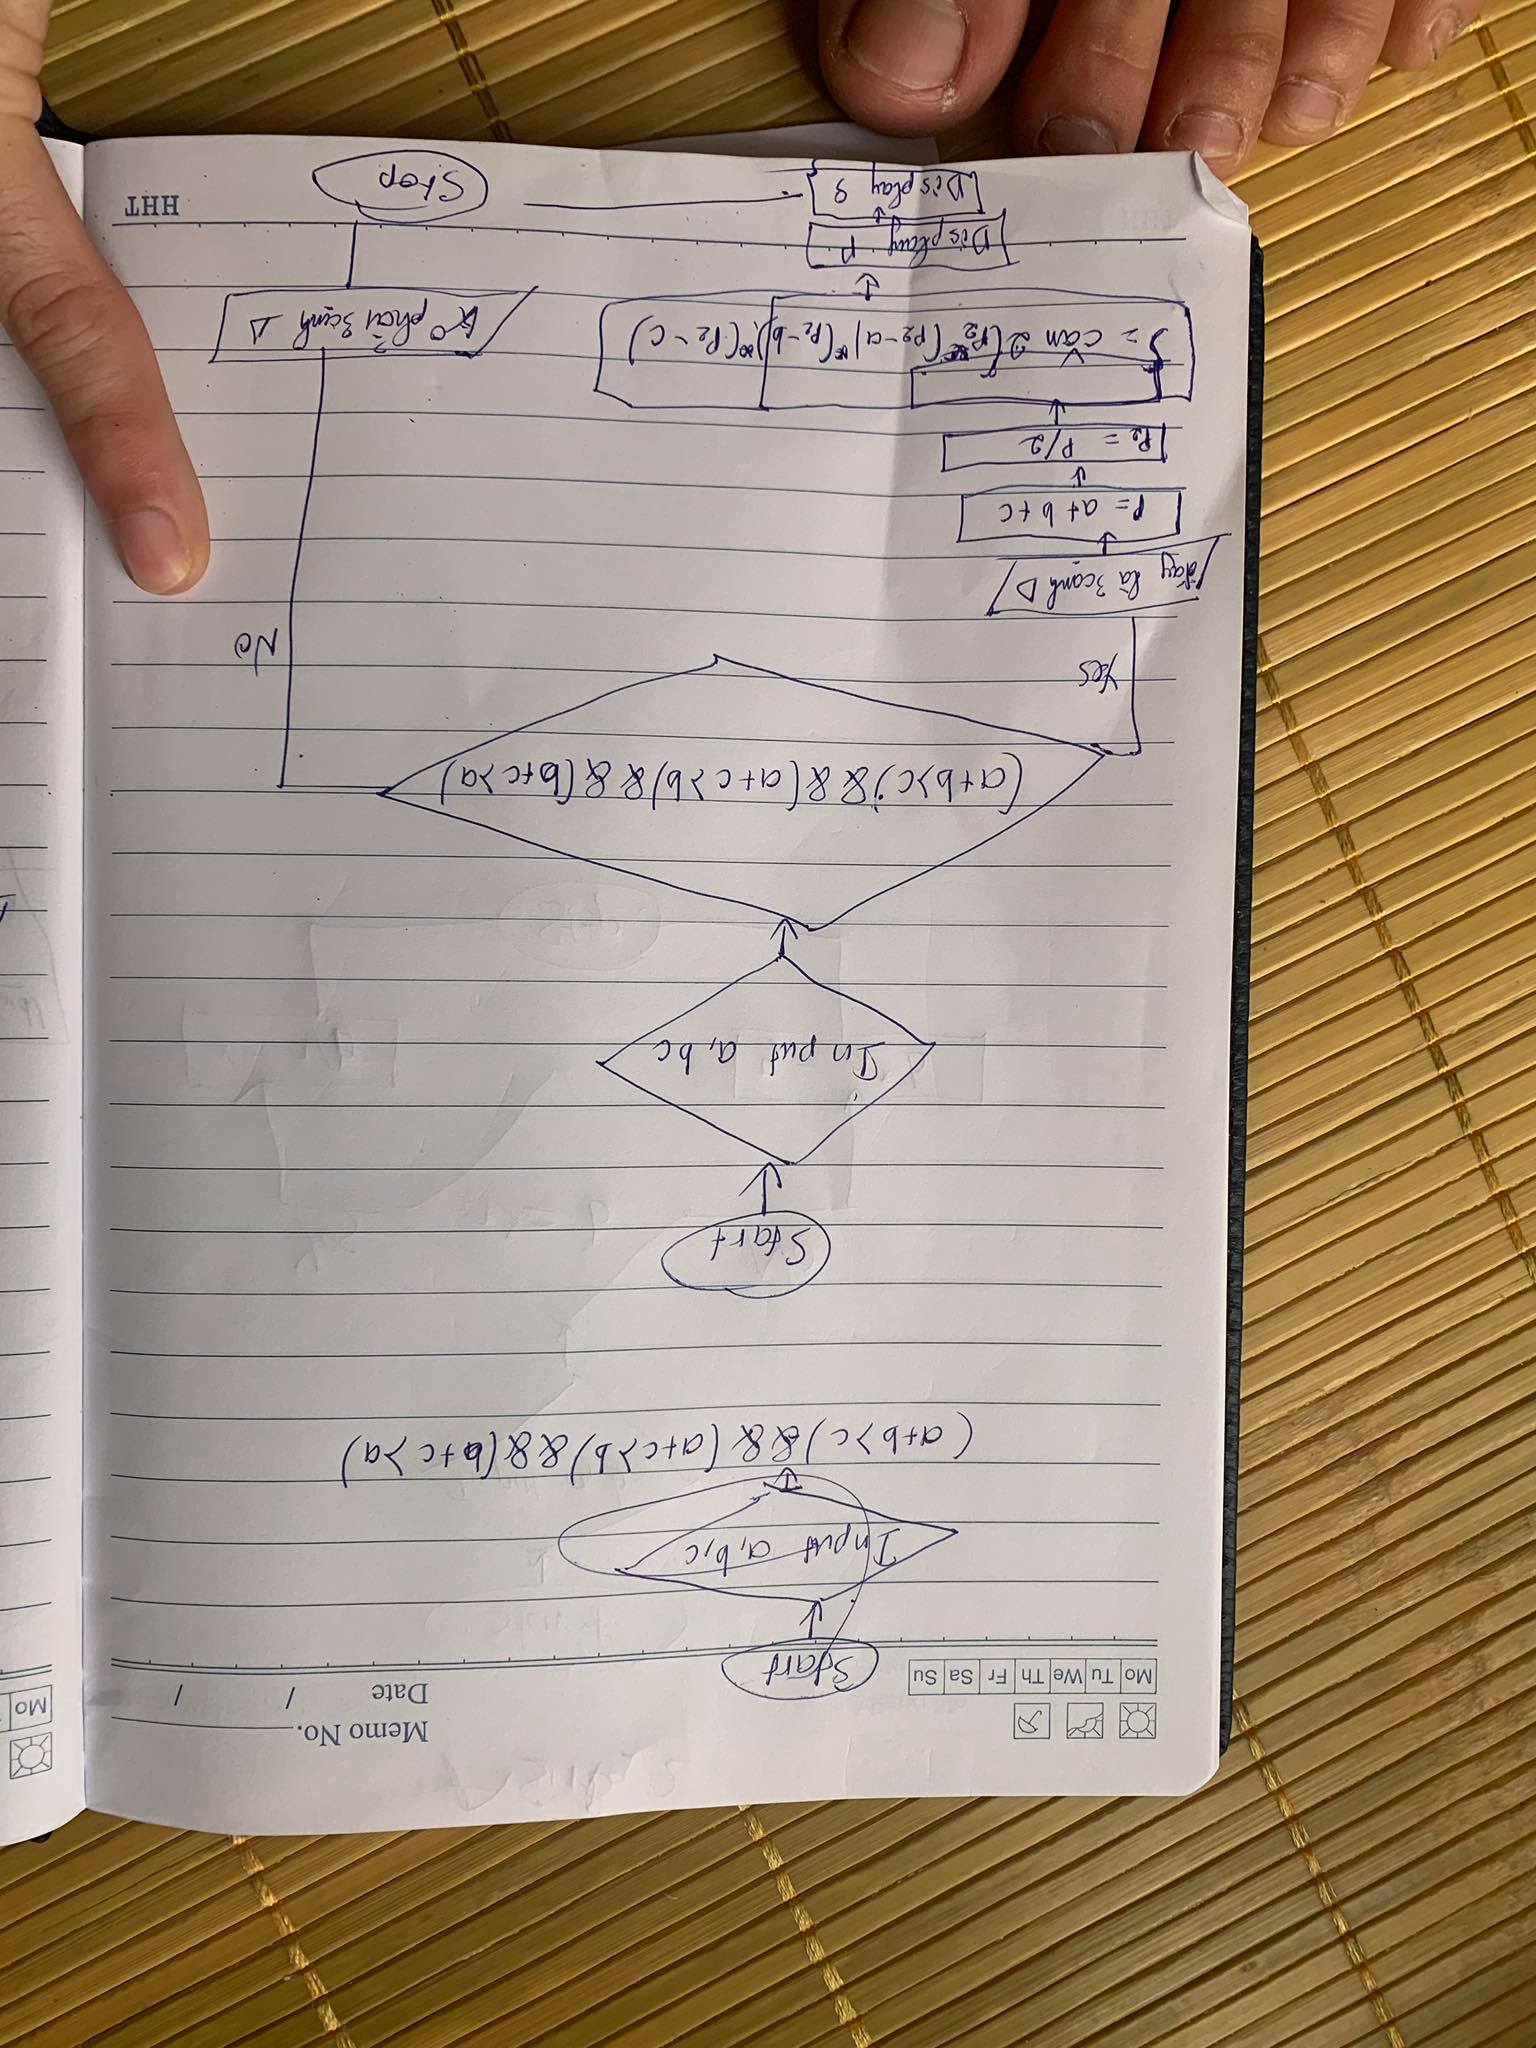 Memo No.
Date / /
Mo Tu We Th Fr Sa Su
Mo
Start
Input a, b, c
(a+b>c) && (a+c>b) && (b+c>a)
Start
Input a, bc
(a+b>c) && (a+c>b) && (b+c>a)
Yes
No
đây là 3 cạnh Δ
P = a + b + c
P2 = P/2
S = căn 2 (P2 * (P2 - a) * (P2 - b) * (P2 - c)
K° phải 3 cạnh Δ
Display P
Display S
Stop
HHT